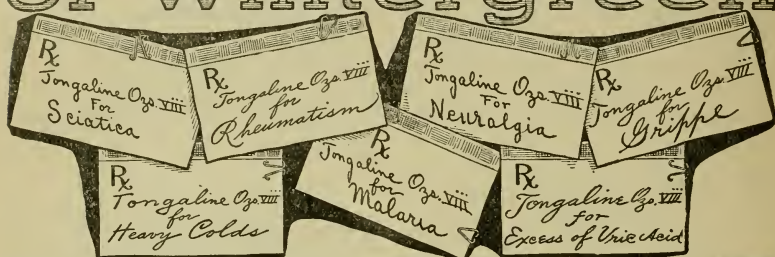 of Wintergreen
Rx
Tongaline Ozs. viii
For
Sciatica
Rx
Tongaline Ozs. VIII
for
Rheumatism
Rx
Tongaline Ozs. VIII
For
Neuralgia
Rx
Tongaline Ozs. VIII
for
Grippe
Rx
Tongaline Ozs. VIII
for
Heavy Colds
Rx
Tongaline Ozs. VIII
for
Malaria
Rx
Tongaline Ozs. VIII
for
Excess of Uric Acid